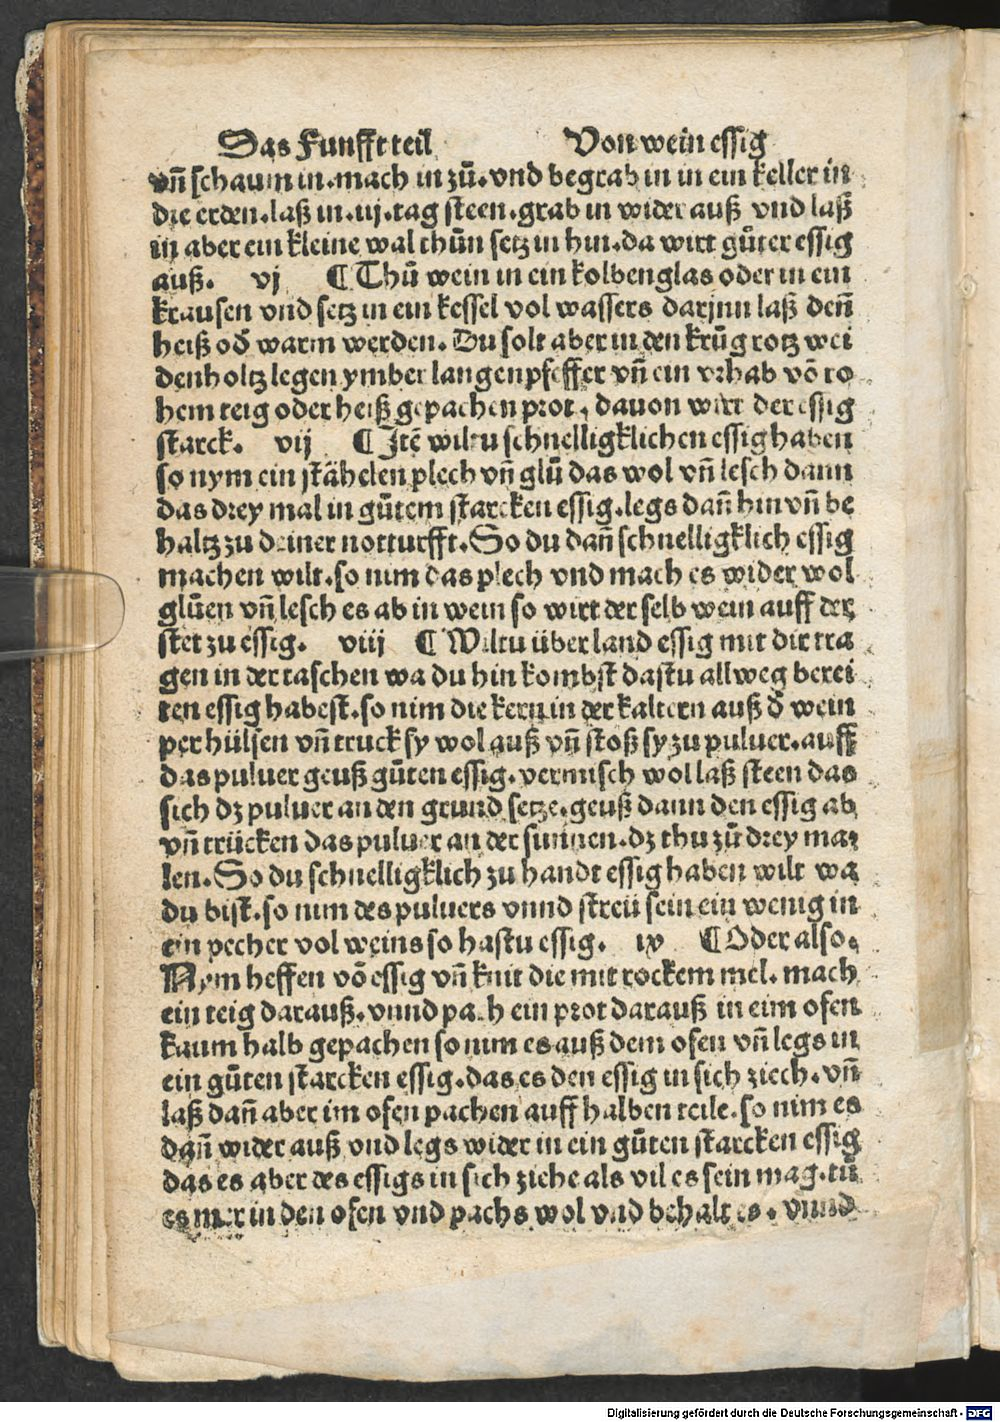 Das Funfft teil Von wein essig
vn̄ schaum in. mach in zů. vnd begrab in in ein keller in
die erden. laß in .iij. tag steen. grab in wider auß vnd laß
in aber ein kleine wal thůn setz in hin. da wirt gůter essig
auß. vj ¶ Thů wein in ein kolbenglas oder in ein
krausen vnd setz in ein kessel vol wassers darjnn laß den̄
heiß od̄ warm werden. Du solt aber in den krůg rotz wei
denholtz legen ymber langen pfeffer vn̄ ein vrhab vō ro
hem teig oder heiß gepachen prot, dauon wirt der essig
starck. vij ¶ Itē wiltu schnelligklichen essig haben
so nym ein stähelen plech vn̄ glů das wol vn̄ lesch dann
das drey mal in gůtem starcken essig. legs dan̄ hin vn̄ be
haltz zu deiner notturfft. So du dan̄ schnelligklich essig
machen wilt. so nim das plech vnd mach es wider wol
glůen vn̄ lesch es ab in wein so wirt der selb wein auff der
stet zu essig. viij ¶ Wiltu über land essig mit dir tra
gen in der taschen wa du hin kombst dastu allweg berei
ten essig habest. so nim die kern in der kaltern auß d̄ wein
per hülsen vn̄ truck sy wol auß vn̄ stoß sy zu puluer. auff
das puluer geuß gůten essig. vermisch wol laß steen das
sich dz puluer an den grund setze. geuß dann den essig ab
vn̄ trücken das puluer an der sunnen. dz thu zů drey ma
len. So du schnelligklich zu handt essig haben wilt wa
du bist. so nim des puluers vnnd streü sein ein wenig in
ein pecher vol weins so hastu essig. ix ¶ Oder also.
Nym heffen vō essig vn̄ knit die mit rockem mel. mach
ein teig darauß. vnnd pach ein prot darauß in eim ofen
kaum halb gepachen so nim es auß dem ofen vn̄ legs in
ein gůten starcken essig. das es den essig in sich ziech. vn̄
laß dan̄ aber im ofen pachen auff halben teile. so nim es
dan̄ wider auß vnd legs wider in ein gůten starcken essig
das es aber des essigs in sich ziehe als vil es sein mag. tů
es mer in den ofen vnd pachs wol vnd behalt es. vnnd
Digitalisierung gefördert durch die Deutsche Forschungsgemeinschaft - DFG